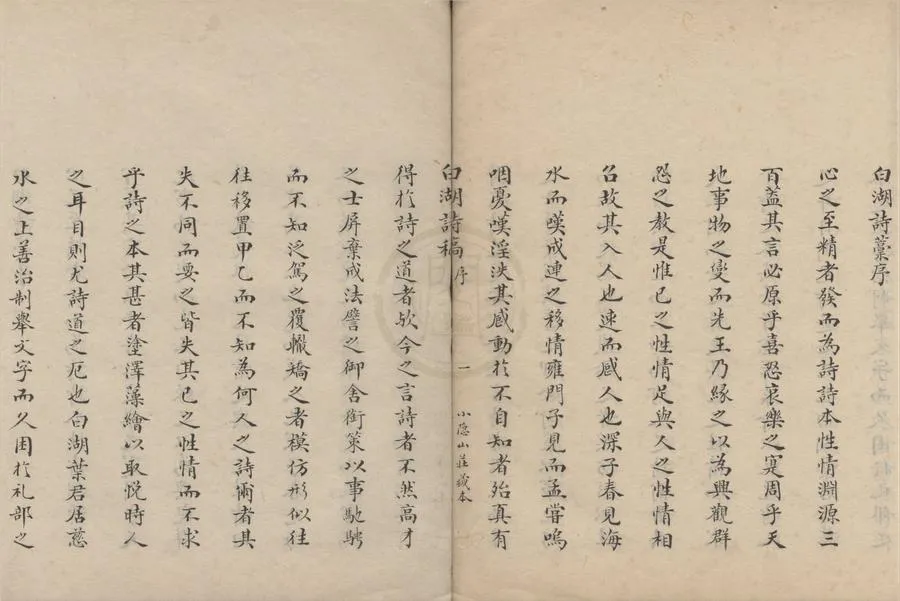 白湖詩藁序
心之至精者發而為詩詩本性情淵源三
百蓋其言必原乎喜怒哀樂之寔周乎天
地事物之變而先王乃緣之以為興觀群
怨之教是惟已之性情足與人之性情相
召故其入人也速而感人也深子春見海
水而嘆成連之移情雍門子見而孟嘗嗚
咽憂嘆淫泆其感動於不自知者殆真有
白湖詩稿 序 一 小隱山莊藏本
得於詩之道者欤今之言詩者不然高才
之士屏棄成法譬之御舍銜策以事馳騁
而不知泛駕之覆轍矯之者模仿形似往
往移置甲乙而不知為何人之詩兩者其
失不同而要之皆失其已之性情而不求
乎詩之本其甚者塗澤藻繪以取悅時人
之耳目則尤詩道之厄也白湖葉君居慈
水之上善治制舉文字而久困於礼部之